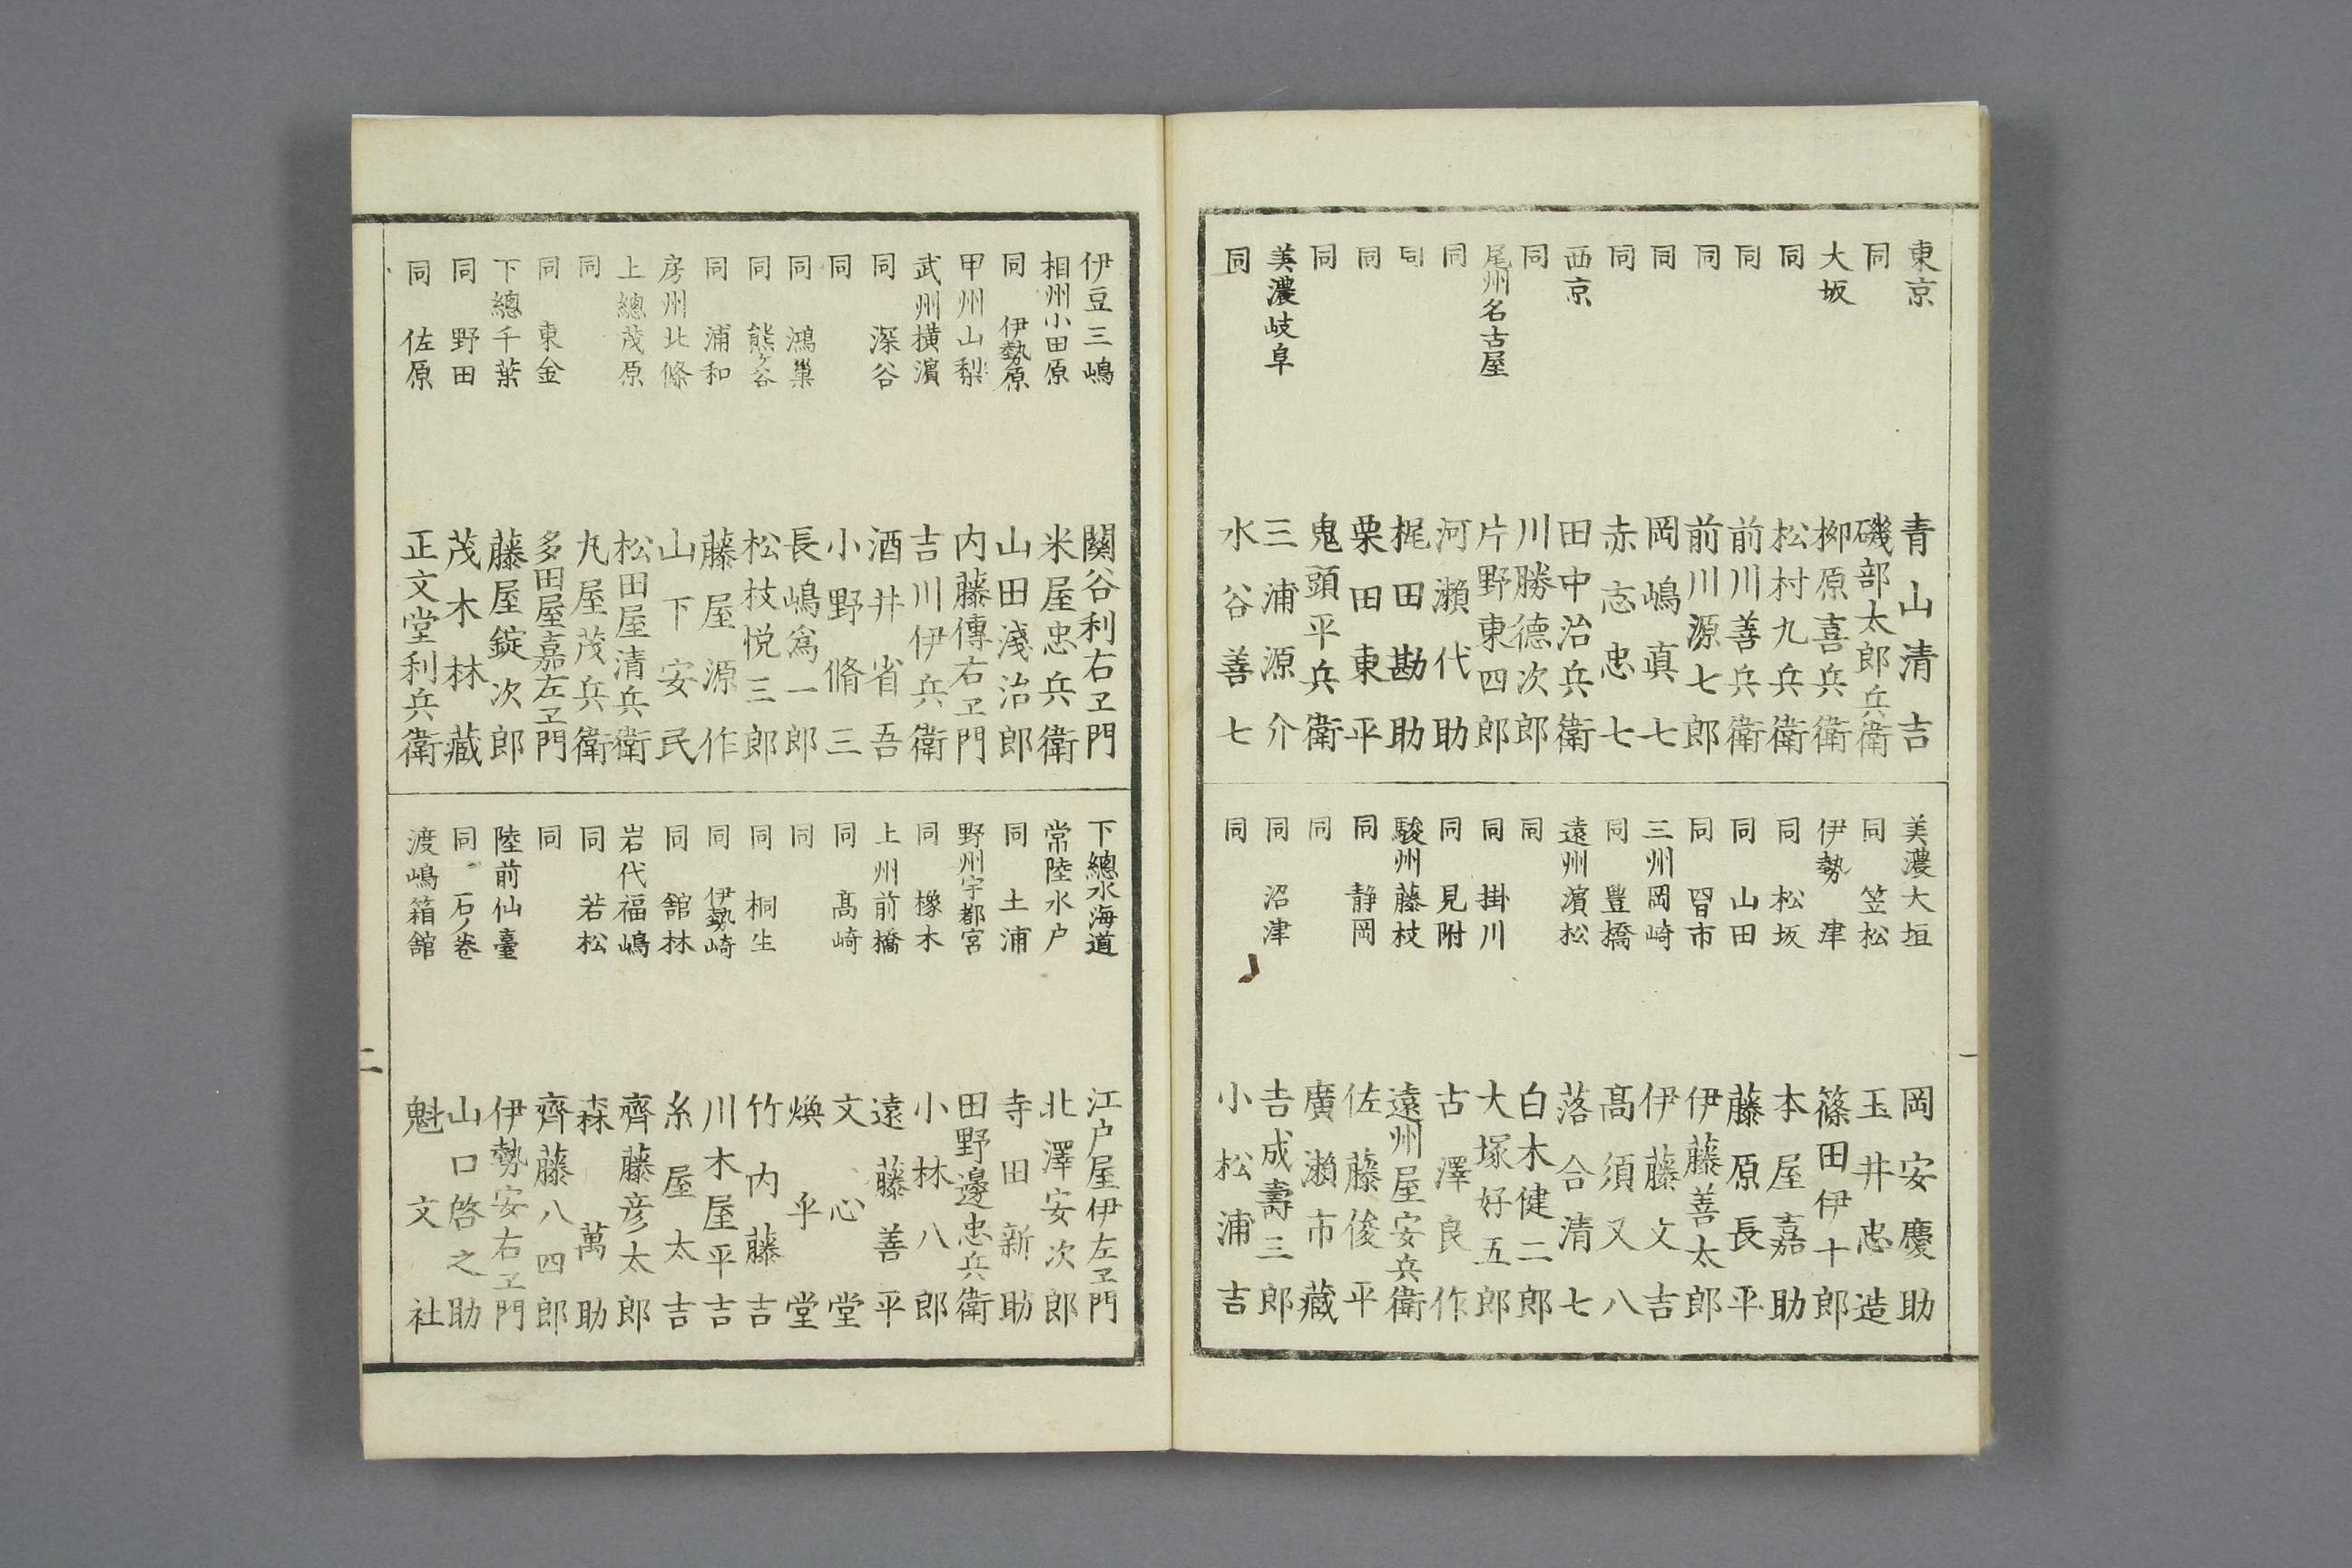 東京 青山清吉
同 磯部太郎兵衛
大坂 柳原喜兵衛
同 松村九兵衛
同 前川善兵衛
同 前川源七郎
同 岡嶋真七
同 赤志忠七
西京 田中治兵衛
同 川勝德次郎
尾州名古屋 片野東四郎
同 河瀬代助
同 梶田勘助
同 栗田東平
同 鬼頭平兵衛
美濃岐阜 三浦源介
同 水谷善七
美濃大垣 岡安慶助
同 笠松 玉井忠造
伊勢津 篠田伊十郎
同 松坂 本屋嘉助
同 山田 藤原長平
同 四日市 伊藤善太郎
三州岡崎 伊藤文吉
同 豊橋 髙須又八
遠州濱松 落合清七
同 白木健二郎
同 掛川 大塚好五郎
同 見附 古澤良作
駿州藤枝 遠州屋安兵衛
同 静岡 佐藤俊平
同 廣瀬市藏
同 沼津 吉成壽三郎
同 小松浦吉
一
伊豆三嶋 關谷利右ヱ門
相州小田原 米屋忠兵衛
同 伊勢原 山田淺治郎
甲州山梨 内藤傳右ヱ門
武州横濱 吉川伊兵衛
同 深谷 酒井省吾
同 小野脩三
同 鴻巣 長嶋為一郎
同 熊ヶ谷 松枝悦三郎
同 浦和 藤屋源作
房州北條 山下安民
上總茂原 松田屋清兵衛
同 丸屋茂兵衛
同 東金 多田屋嘉左ヱ門
下總千葉 藤屋錠次郎
同 野田 茂木林藏
同 佐原 正文堂利兵衛
下總水海道 江户屋伊左ヱ門
常陸水户 北澤安次郎
同 土浦 寺田新助
野州宇都宮 田野邊忠兵衛
同 橡木 小林八郎
上州前橋 遠藤善平
同 髙崎 文心堂
同 煥乎堂
同 桐生 竹内藤吉
同 伊勢崎 川木屋平吉
同 舘林 糸屋太吉
岩代福嶋 齊藤彦太郎
同 若松 森萬助
同 齊藤八四郎
陸前仙臺 伊勢安右ヱ門
同 石ノ巻 山口啓之助
渡嶋箱舘 魁文社
二